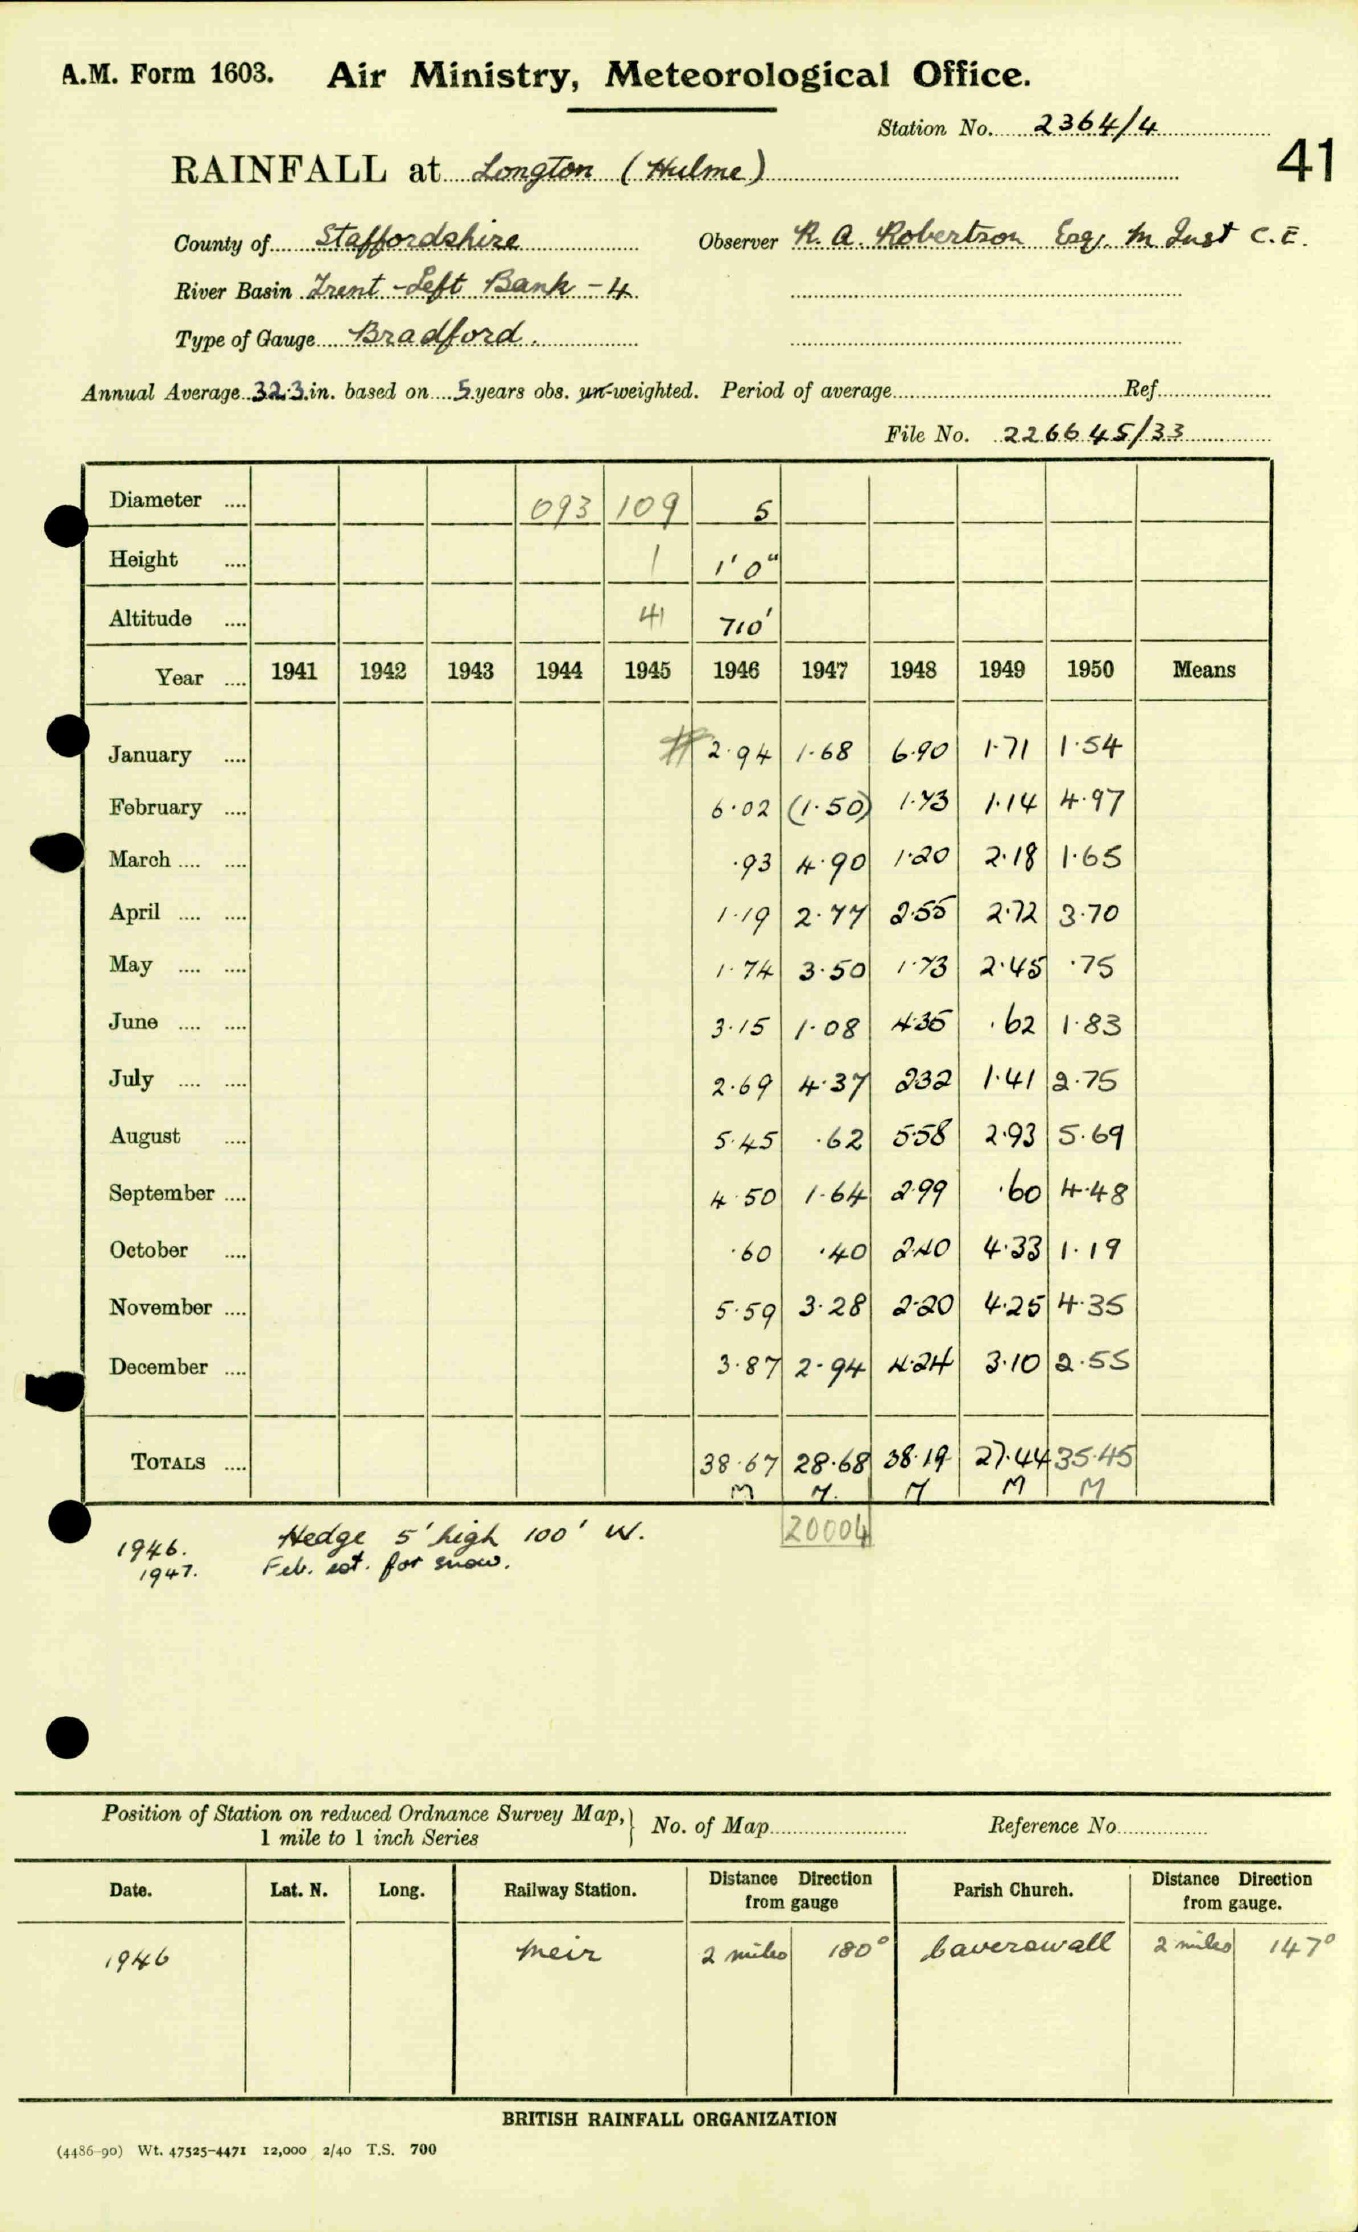 A.M. Form 1603. Air Ministry, Meteorological Office.
Station No. 2364/4
41
RAINFALL at Longton (Hulme)
County of Staffordshire Observer R. A. Robertson Esq. M Inst C.E.
River Basin Trent - Left Bank - 4
Type of Gauge Bradford.
Annual Average 32.3 in. based on 5 years obs. un-weighted. Period of average Ref.
File No. 226645/33
Diameter .... 093 109 5
Height .... 1 1' 0"
Altitude .... 41 710'
Year .... 1941 1942 1943 1944 1945 1946 1947 1948 1949 1950 Means
January .... 2.94 1.68 6.90 1.71 1.54
February .... 6.02 (1.50) 1.73 1.14 4.97
March .... .... .93 4.90 1.20 2.18 1.65
April .... .... 1.19 2.77 2.55 2.72 3.70
May .... .... 1.74 3.50 1.73 2.45 .75
June .... .... 3.15 1.08 4.35 .62 1.83
July .... .... 2.69 4.37 232 1.41 2.75
August .... 5.45 .62 5.58 2.93 5.69
September .... 4.50 1.64 2.99 .60 4.48
October .... .60 .40 2.40 4.33 1.19
November .... 5.59 3.28 2.20 4.25 4.35
December .... 3.87 2.94 4.24 3.10 2.55
TOTALS .... 38.67 28.68 38.19 27.44 35.45
M M M M M
20004
1946. Hedge 5' high 100' W.
1947. Feb. est. for snow.
Position of Station on reduced Ordnance Survey Map,
1 mile to 1 inch Series
No. of Map Reference No
Date. Lat. N. Long. Railway Station. Distance Direction from gauge Parish Church. Distance Direction from gauge.
1946 Meir 2 miles 180° Caverswall 2 miles 147°
BRITISH RAINFALL ORGANIZATION
(4486-90) Wt. 47525-4471 12,000 2/40 T.S. 700